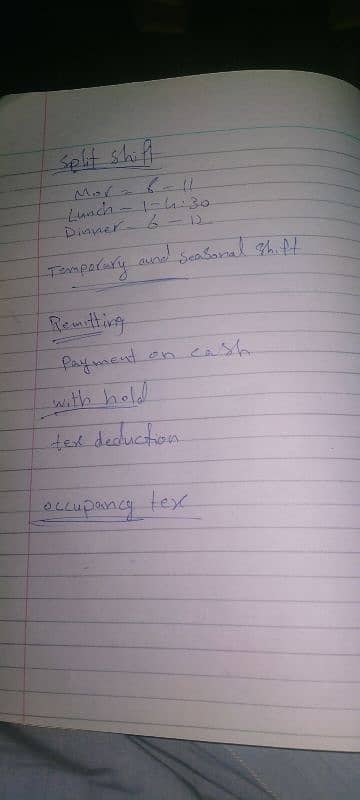 Split Shift
Mor = 6 - 11
Lunch - 1 - 4:30
Dinner - 6 - 12
Temporary and seasonal shift
Remitting
Payment on cash
with hold
tex deduction
occupancy tex